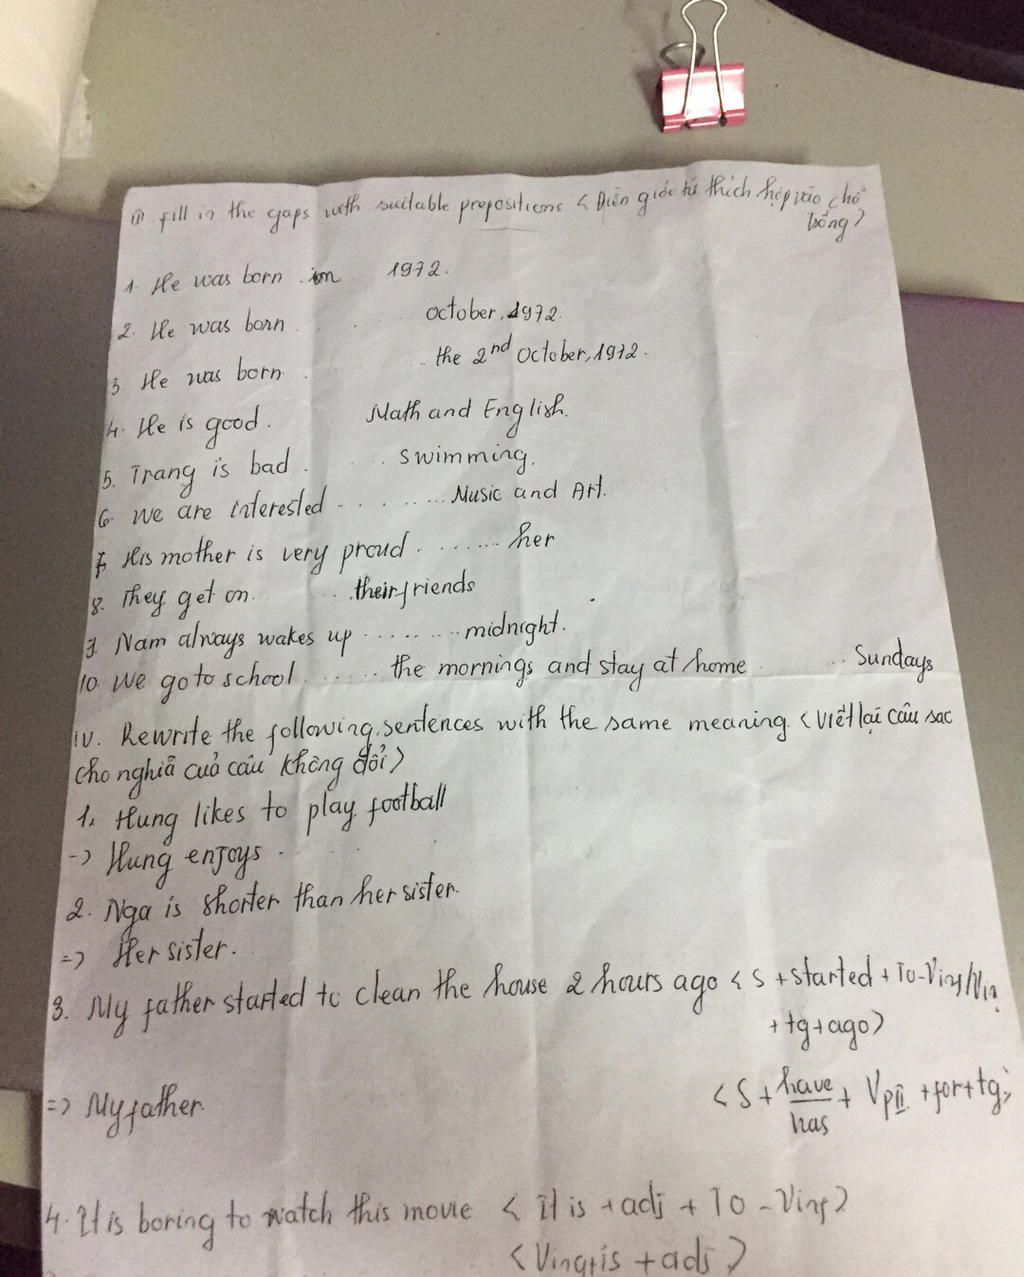 fill in the gaps with suitable prepositions < Điền giới từ thích hợp vào chỗ
trống >
1. He was born in 1972.
2. He was born . . october, 1972.
3. He was born . .. the 2nd October, 1972.
4. He is good . Math and English.
5. Trang is bad . .. swimming.
6. We are interested ......... Music and Art.
7. His mother is very proud ....... her
8. They get on. ... their friends
9. Nam always wakes up ......... midnight.
10. We go to school ...... the mornings and stay at home . .. Sundays
iv. Rewrite the following sentences with the same meaning < Viết lại câu sao
cho nghĩa cuả câu không đổi >
1. Hung likes to play football
-> Hung enjoys .
2. Nga is shorter than her sister.
=> Her sister.
3. My father started to clean the house 2 hours ago < S + started + To-Ving/Ving
+ tg + ago >
=> My father.
< S + have/has + VpII + for + tg >
4. It is boring to watch this movie < it is + adj + To - Ving >
< Ving + is + adj >